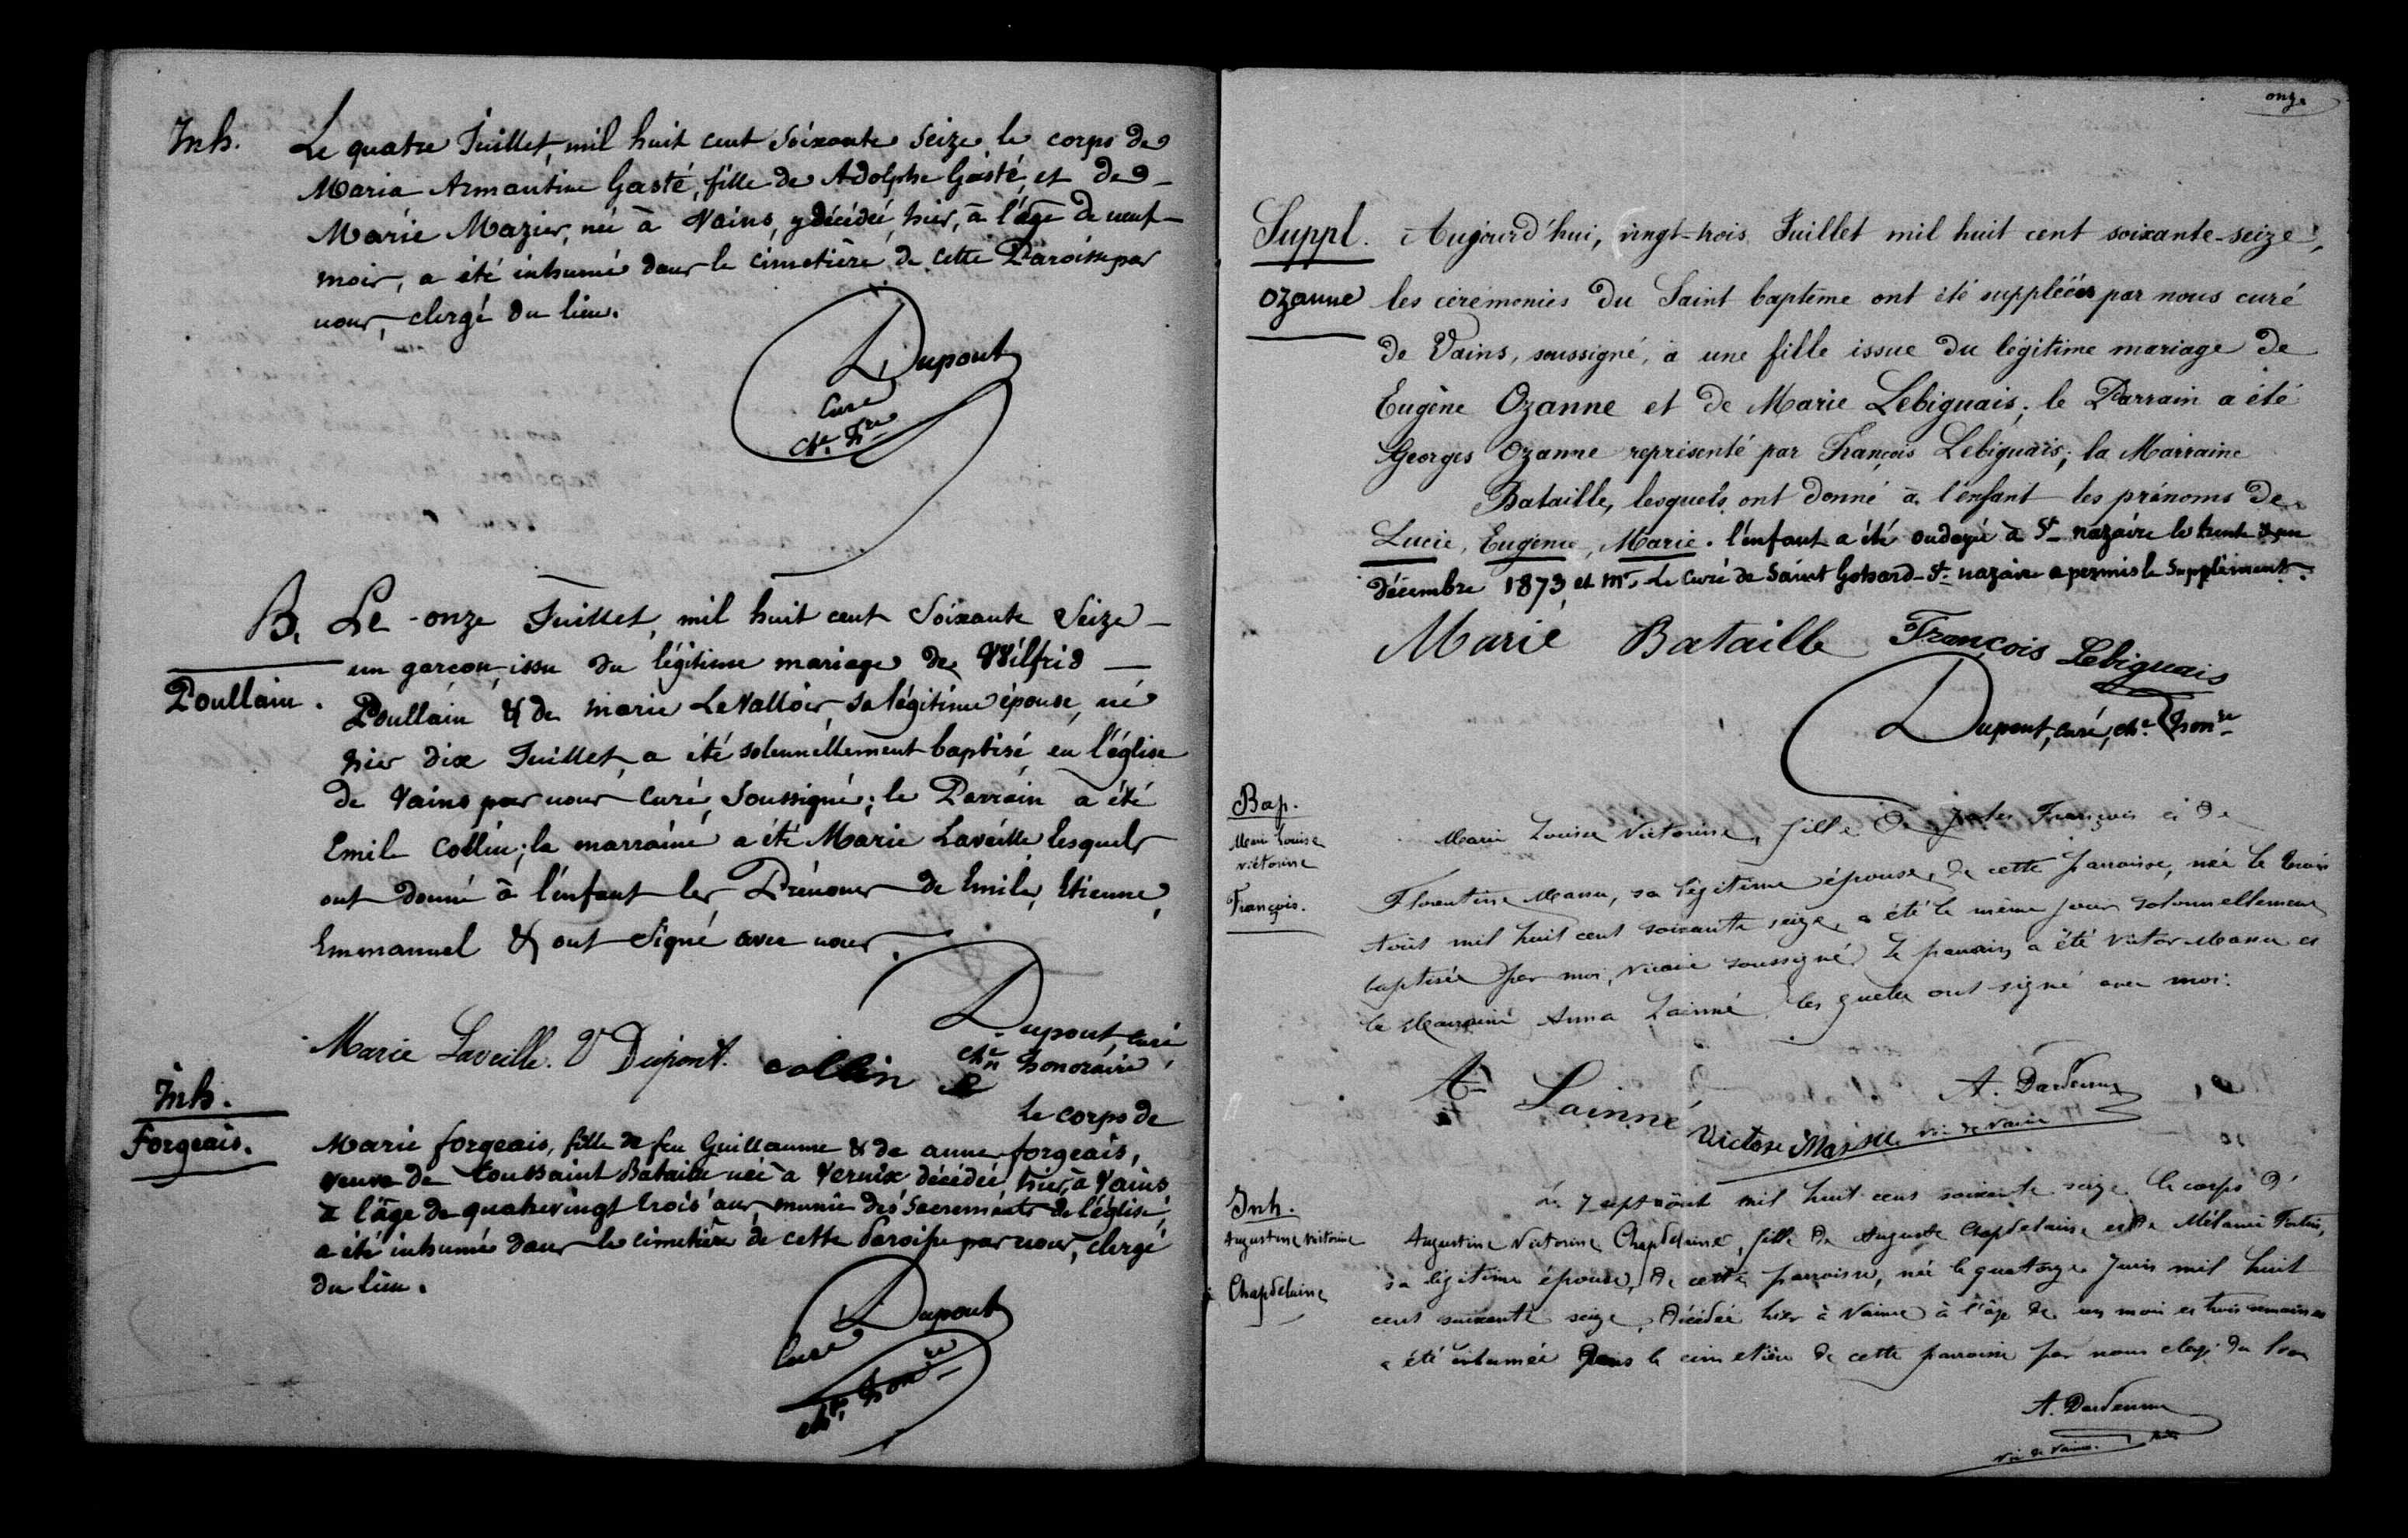 Inh. Le quatre Juillet, mil huit cent soixante seize, le corps de
Maria Armantine Gasté, fille de Adolphe Gasté, et de
Marie Mazier, née à Vains, y décédée, hier, à l'âge de neuf
mois, a été inhumé dans le cimetière de cette Paroisse par
nous, clergé du lieu.
Dupont
Curé
Ch. hre
B. Le onze Juillet, mil huit cent soixante seize
un garçon, issu du légitime mariage de Wilfrid
Poullain. Poullain & de marie LeVallois, sa légitime épouse, né
hier dix Juillet, a été solennellement baptisé en l'église
de Vains par nous Curé, soussigné; le Parrain a été
Emile Collin; la marraine a été Marie Laveille lesquels
ont donné à l'enfant les Prénoms de Emile, Etienne,
Emmanuel & ont signé avec nous.
Marie Laveille. V Dupont. collin E
Dupont, curé
chne honoraire,
Inh. Le corps de
Forgeais. Marie forgeais, fille de feu Guillaume & de anne forgeais,
veuve de toussaint Bataille née à Vernix décédée, hier, à Vains
à l'âge de quatrevingt trois ans, munie des sacrements de l'église,
a été inhumé dans le cimetière de cette Paroisse par nous, clergé
du lieu.
Dupont
Curé
chne honre
onze
Suppl. Aujourd'hui, vingt-trois Juillet mil huit cent soixante-seize,
Ozanne les cérémonies du Saint baptême ont été suppléées par nous curé
de Vains, soussigné, à une fille issue du légitime mariage de
Eugène Ozanne et de Marie Lebiguais; le Parrain a été
Georges Ozanne représenté par François Lebiguais; la Marraine
Bataille, lesquels ont donné à l'enfant les prénoms de
Lucie, Eugénie, Marie. l'enfant a été ondoyé à St nazaire le trente & un
décembre 1873, et Mr Le curé de Saint Gohard-St nazaire a permis le supplément.
Marie Bataille François Lebiguais
Dupont, curé, chne honre
Bap.
Marie Louise
Victorine
François.
Marie Louise Victorine, fille de Jules François et de
Florentine Massu, sa légitime épouse, de cette paroisse, née le trois
Août mil huit cent soixante seize, a été le même jour solennellement
baptisée par moi, vicaire soussigné. Le parrain a été Victor Massu et
la Marraine Anna Lainné lesquels ont signé avec moi.
A Lainné Victore Massu A. Dardenne
vic de Vains
Inh.
Augustine Victorine
Chapdelaine
Le 7 sept août mil huit cent soixante seize le corps d'
Augustine Victorine Chapdelaine, fille de Auguste Chapdelaine et de Mélanie Fortin,
sa légitime épouse, de cette paroisse, née le quatorze Juin mil huit
cent soixante seize, décédée hier à Vains à l'âge de un mois et trois semaines
a été inhumée dans le cimetière de cette paroisse par nous clergé du lieu
A. Dardenne
vic de Vains.